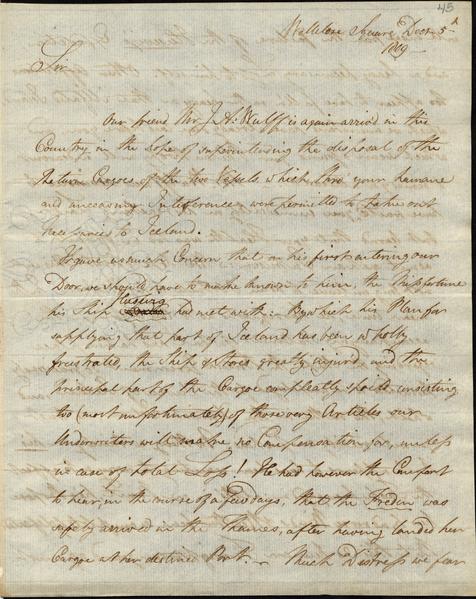 45
Wellclose Square Decr. 5th
1809
Sir
Our friend Mr. J. A. Wulff is again arrived in this
Country in the hope of superintending the disposal of the
Return Cargoes of the two Vessels which, thro your humane
and unceasing Interference were permitted to take out
necessaries to Iceland.
It gave us much Concern that on his first entering our
Door, we should have to make known to him, the Misfortune
his Ship had met with: By which his Plan for
supplying that part of Iceland has been wholly
frustrated, the Ship & Stores greatly injured, and the
principal part of the Cargoe compleatly spoild, consisting
too (most unfortunately) of those very Articles our
Underwriters will make no Compensation for, unless
in case of total Loss! He had however the Comfort
to hear, in the course of a few days, that the Freden was
safely arrived in the Thames, after having landed her
Cargoe at her destined Port. Much Distress we fear